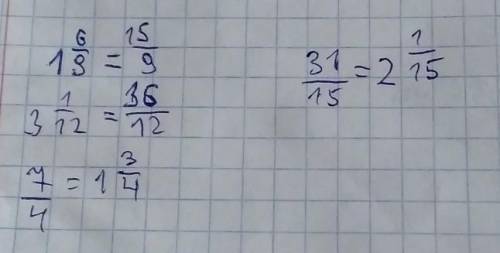 1 6/9 = 15/9
3 1/12 = 36/12
7/4 = 1 3/4
31/15 = 2 1/15